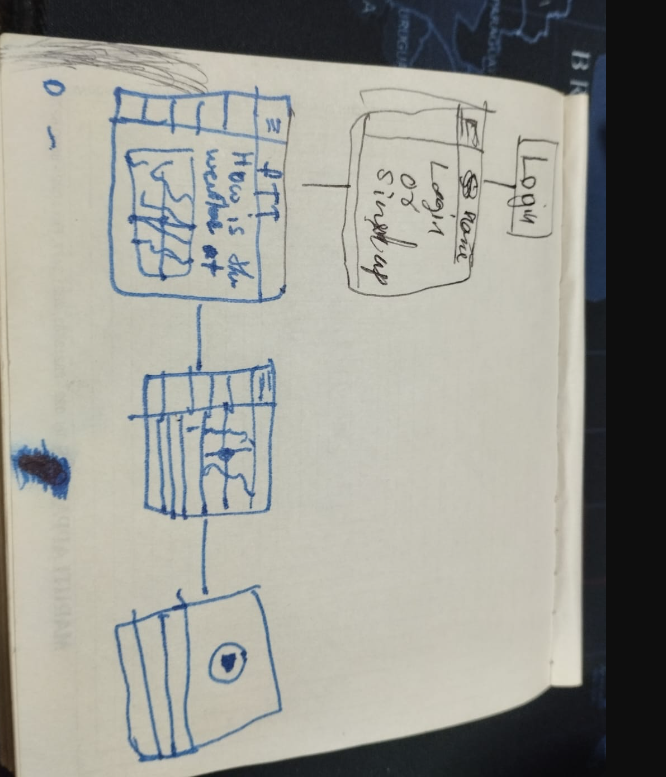 Login
name
Login
or
Singh up
PTT
How is the
weather at
B